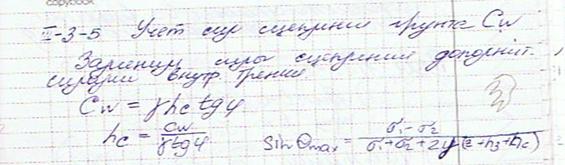 copybook
III-3-5 Учет сил сцепления грунта Cw
Заменим силы сцепления дополнит.
силами внутр. трения
Cw = γhc tgφ
hc = Cw / γtgφ sinΘmax = σ1-σ2 / σ1+σ2+2γ(z+h3+hc)